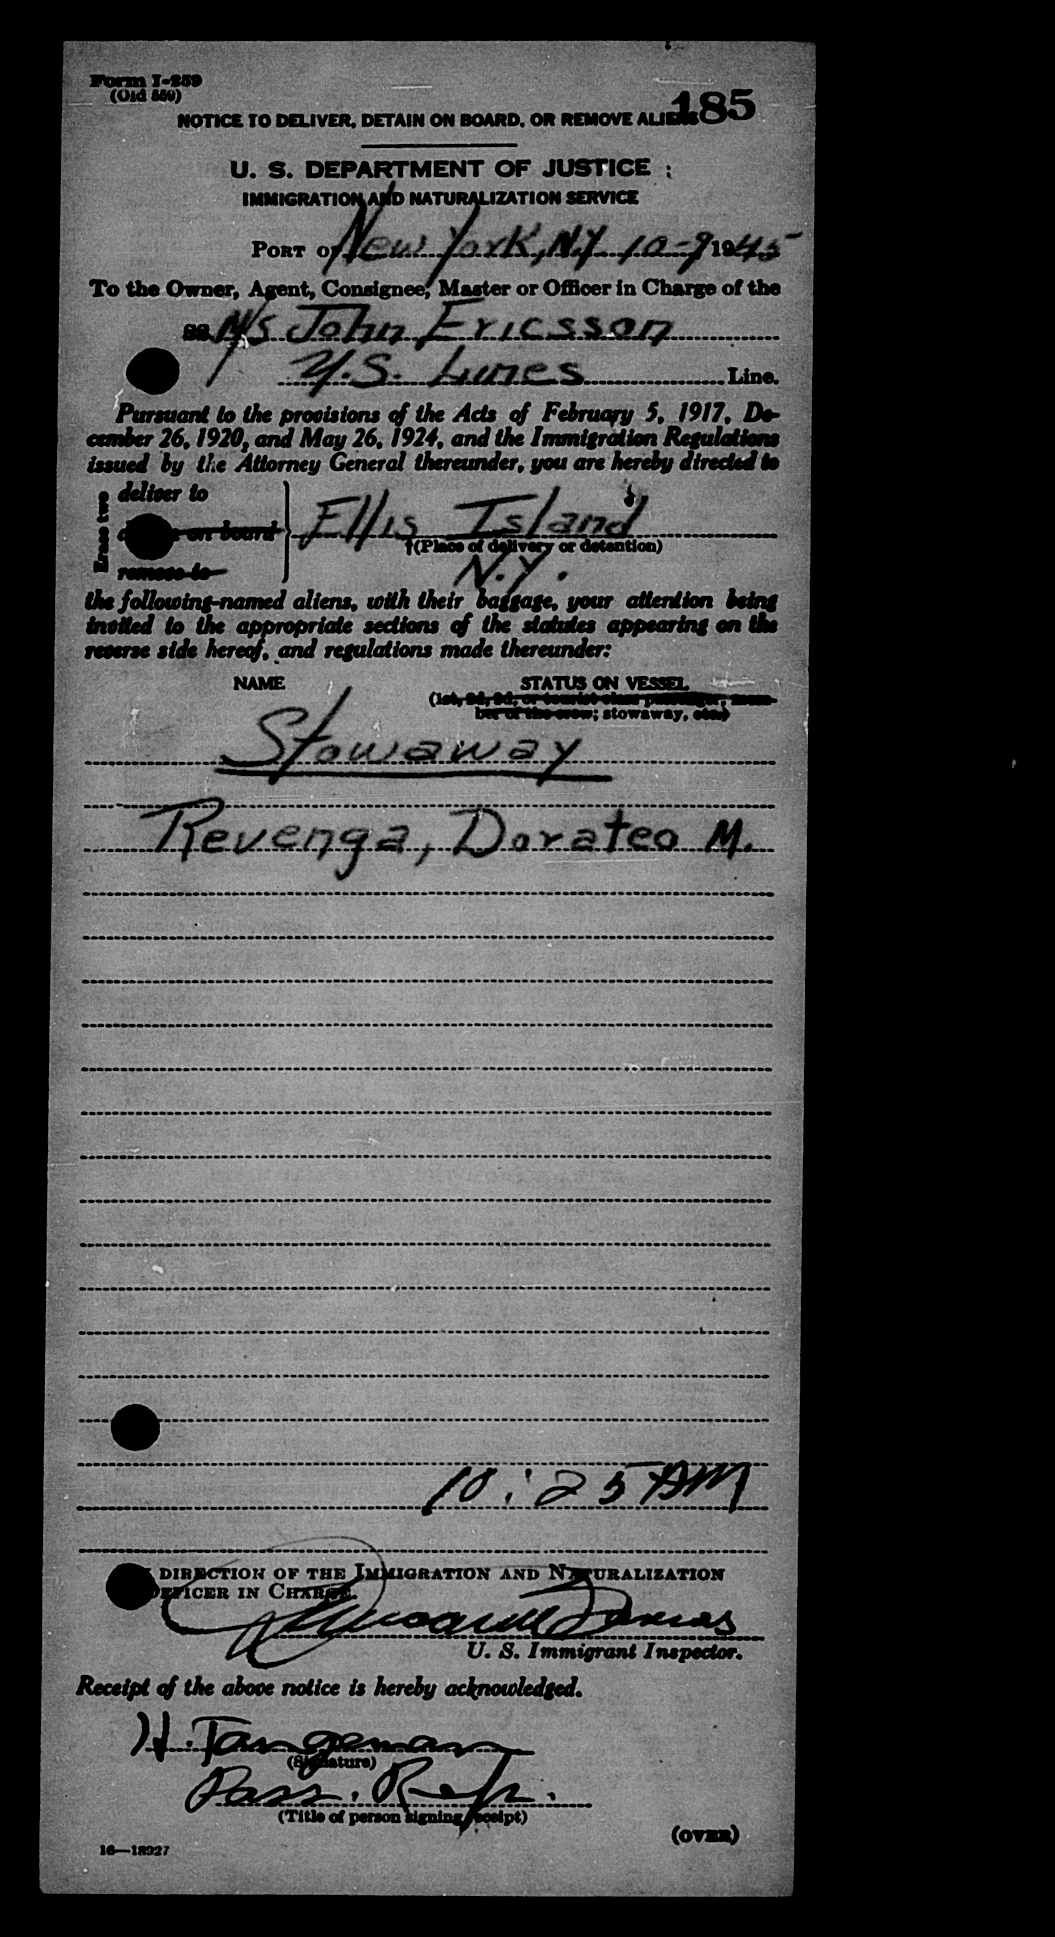 Form I-259
(Old 559)
185
NOTICE TO DELIVER, DETAIN ON BOARD, OR REMOVE ALIENS
U. S. DEPARTMENT OF JUSTICE
IMMIGRATION AND NATURALIZATION SERVICE
PORT OF New York, N.Y. 10-9 1945
To the Owner, Agent, Consignee, Master or Officer in Charge of the
SS M/S John Ericsson
U.S. Lines Line.
Pursuant to the provisions of the Acts of February 5, 1917, De-
cember 26, 1920, and May 26, 1924, and the Immigration Regulations
issued by the Attorney General thereunder, you are hereby directed to
Erase two
deliver to
on board
remove to
Ellis Island
†(Place of delivery or detention)
N.Y.
the following-named aliens, with their baggage, your attention being
invited to the appropriate sections of the statutes appearing on the
reverse side hereof, and regulations made thereunder:
NAME STATUS ON VESSEL
(1st, 2d, 3d, or tourist class passenger, mem-
ber of the crew; stowaway, etc.)
Stowaway
Revenga, Dorateo M.
10:25 AM
DIRECTION OF THE IMMIGRATION AND NATURALIZATION
OFFICER IN CHARGE.
U. S. Immigrant Inspector.
Receipt of the above notice is hereby acknowledged.
H. Tangeman
(Signature)
Pass. Repr.
(Title of person signing receipt)
(OVER)
16—18927